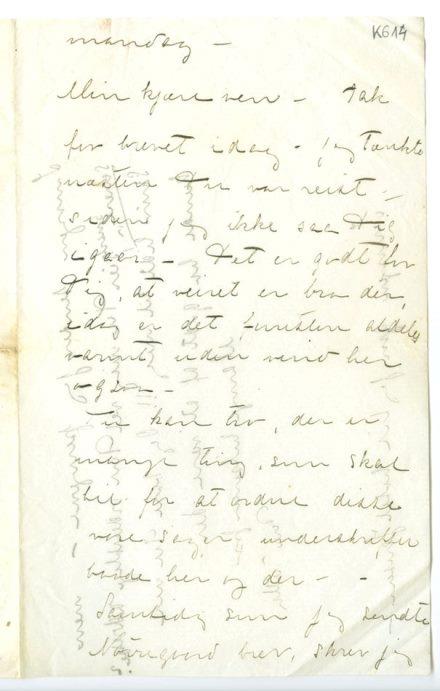 K614
mandag –
Min kjære ven – Tak
for brevet idag – jeg tænkte
næsten Du var reist –
siden jeg ikke saa Dig
igaar – Det er godt for
Dig, at veiret er bra der,
idag er det næsten aldeles
varmt uden vind her
ogsaa –
Du kan tro, der er
mange ting, som skal
til for at ordne disse
vore sager underskrifter
baade her og der –
Samtidig som jeg sendte
Nörregaard brev, skrev jeg